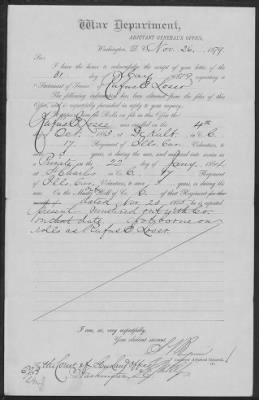 War Department,
ADJUTANT GENERAL'S OFFICE,
Washington, D. C., Nov. 26, 1879.
Sir:
I have the honor to acknowledge the receipt of your letter of the
31 day of 1879, requesting a
Statement of Service of Rufus E. Loser
The following information has been obtained from the files of this
Office, and is respectfully furnished in reply to your inquiry.
It appears from the Rolls on file in this Office, that
Rufus E. was enrolled on the 4th
day of Oct., 1863, at DeKalb in Co. C
17. Regiment of Ills. Cav. Volunteers, to
serve 3 years, or during the war, and mustered into service as
a Private on the 22 day of Jany, 1864,
at St Charles in Co. C. 17 Regiment
of Ills. Cav. Volunteers, to serve 3 years, or during the
war. On the Muster Roll of Co. C of that Regiment for the
dated Nov 23, 1865, he is reported
present Mustered out with Co.
on that date. Also borne on
rolls as Rufus E. Loser.
I am, sir, very respectfully,
Your obedient servant,
Assistant Adjutant General.
The Com. of Pensions Office
Washington, D.C.